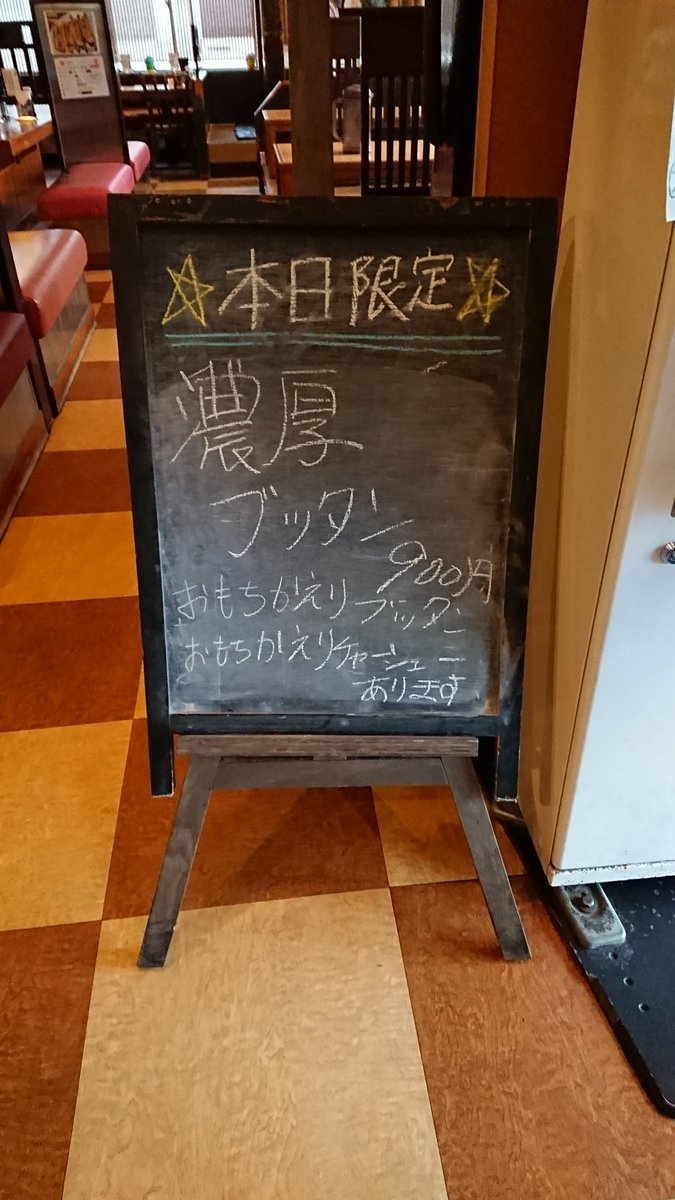 ☆本日限定☆
濃厚
ブッタン
900円
おもちかえりブッタン
おもちかえりチャーシュー
あります